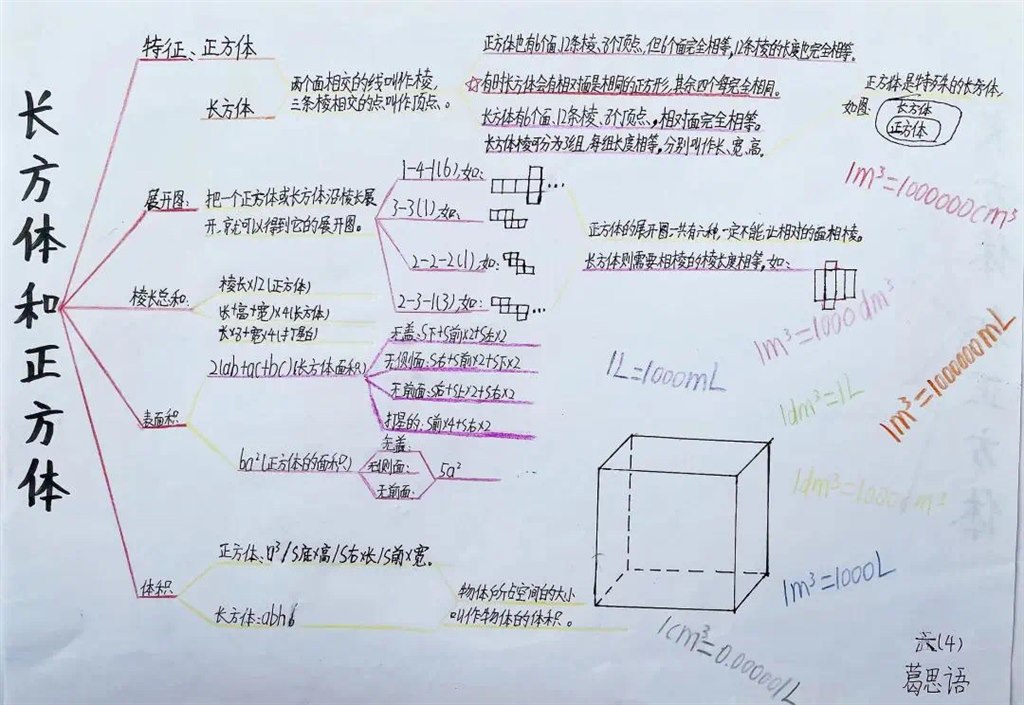 长方体和正方体
特征、正方体
长方体
两个面相交的线叫作棱,
三条棱相交的点叫作顶点、。
正方体也有6个面、12条棱、8个顶点、但6个面完全相等,12条棱的长度也完全相等。
☆有时长方体会有相对面是相同的正方形,其余四个每完全相同。
长方体有6个面、12条棱、8个顶点、,相对面完全相等。
长方体棱可分为3组,每组长度相等,分别叫作长、宽、高。
正方体是特殊的长方体,
如图:
长方体
正方体
展开图:
把一个正方体或长方体沿棱长展
开、就可以得到它的展开图。
1-4-1(6),如:
3-3(1),如:
2-2-2(1),如:
2-3-1(3),如:
正方体的展开图一共有六种,一定不能让相对的面相棱。
长方体则需要相棱的棱长度相等,如:
棱长总和:
棱长×12(正方体)
(长+高+宽)×4(长方体)
表面积:
2(ab+ac+bc)(长方体面积)
无盖:S下+S前×2+S左×2
无侧面:S右+S前×2+S下×2
无前面:S后+S上×2+S右×2
打湿的:S前×4+S右×2
6a²(正方体的面积)
无盖:
无侧面:
无前面:
5a²
体积
正方体、a³/S底×高/S右×长/S前×宽。
长方体:abh
物体所占空间的大小
叫作物体的体积。
1m³=1000000cm³
1m³=1000dm³
1L=1000mL
1m³=1000000mL
1dm³=1L
1dm³=1000cm³
1m³=1000L
1cm³=0.00001L
六(4)
葛思语